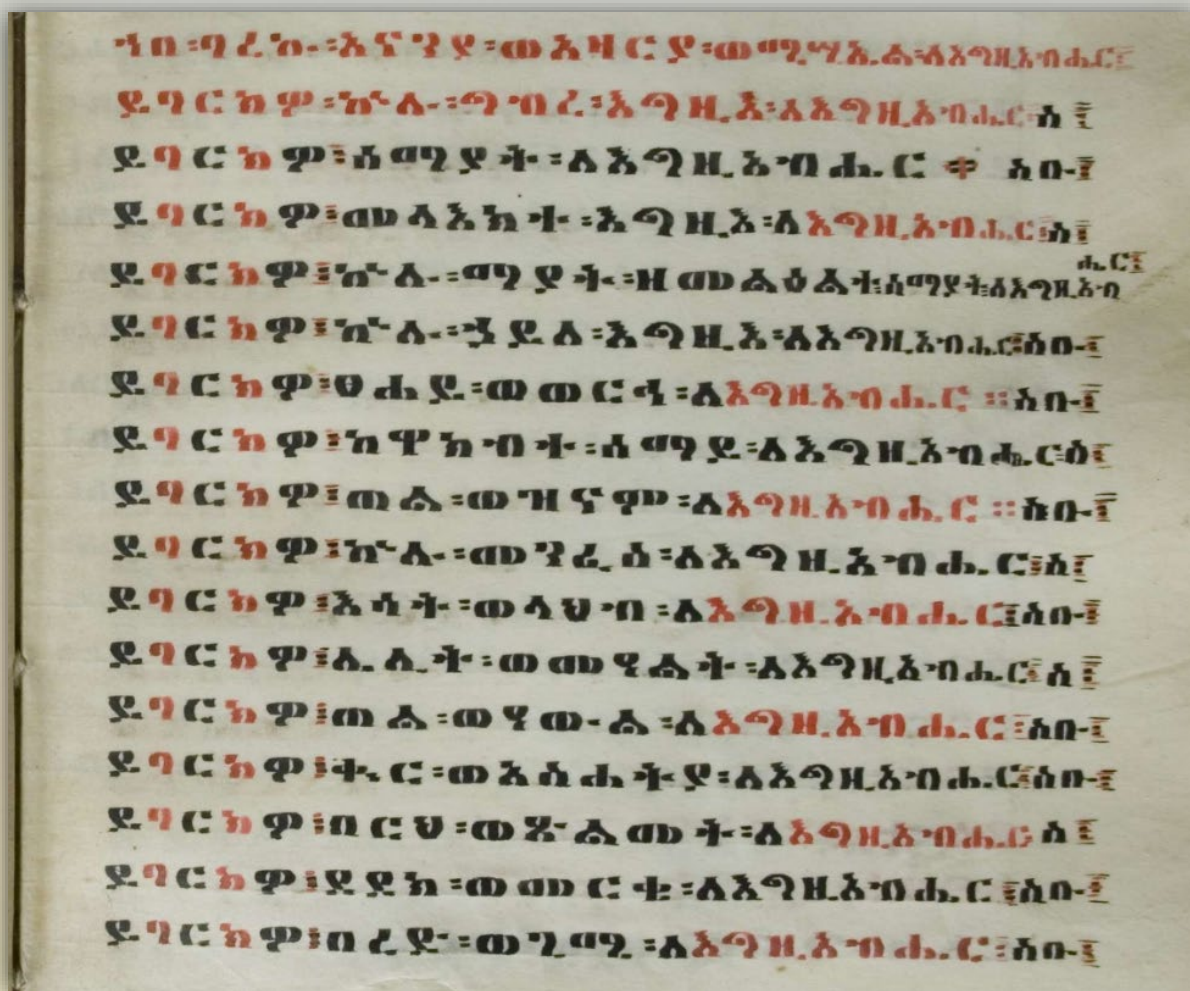 ኀበ፡ባረኩ፡አናንያ፡ወአዛርያ፡ወሚሣኤል፡ለእግዚአብሔር፤
ይባርክዎ፡ኵሉ፡ግብረ፡እግዚእ፡ለእግዚአብሔር፡ስ፤
ይባርክዎ፤ሰማያት፡ለእግዚአብሔር ። ስቡ፤
ይባርክዎ፤መላእክት፡እግዚእ፡ለእግዚአብሔር፡ስ፤
ይባርክዎ፤ኵሉ፡ማያት፡ዘመልዕልት፡ሰማያት፡ለእግዚአብ
ሔር፤
ይባርክዎ፤ኵሉ፡ኃይለ፡እግዚእ፡ለእግዚአብሔር፡ስቡ፤
ይባርክዎ፤ፀሐይ፡ወወርኅ፡ለእግዚአብሔር ፡፡ስቡ፤
ይባርክዎ፤ከዋክብት፡ሰማይ፡ለእግዚአብሔር፡ስ፤
ይባርክዎ፤ጠል፡ወዝናም፡ለእግዚአብሔር ፡፡ስቡ፤
ይባርክዎ፤ኵሉ፡መንፈስ፡ለእግዚአብሔር፤ስ፤
ይባርክዎ፤እሳት፡ወላህብ፡ለእግዚአብሔር፤ስቡ፤
ይባርክዎ፤ሌሊት፡ወመዓልት፡ለእግዚአብሔር፤ስ፤
ይባርክዎ፤ጠል፡ወዓውል፡ለእግዚአብሔር፡ስቡ፤
ይባርክዎ፤ቍር፡ወአስሐትያ፡ለእግዚአብሔር፤ስቡ፤
ይባርክዎ፤በርህ፡ወጽልመት፡ለእግዚአብሔር ስ፤
ይባርክዎ፤ደደክ፡ወመርቄ፡ለእግዚአብሔር ፤ስቡ፤
ይባርክዎ፤በረድ፡ወጊሜ፡ለእግዚአብሔር፡ስቡ፤